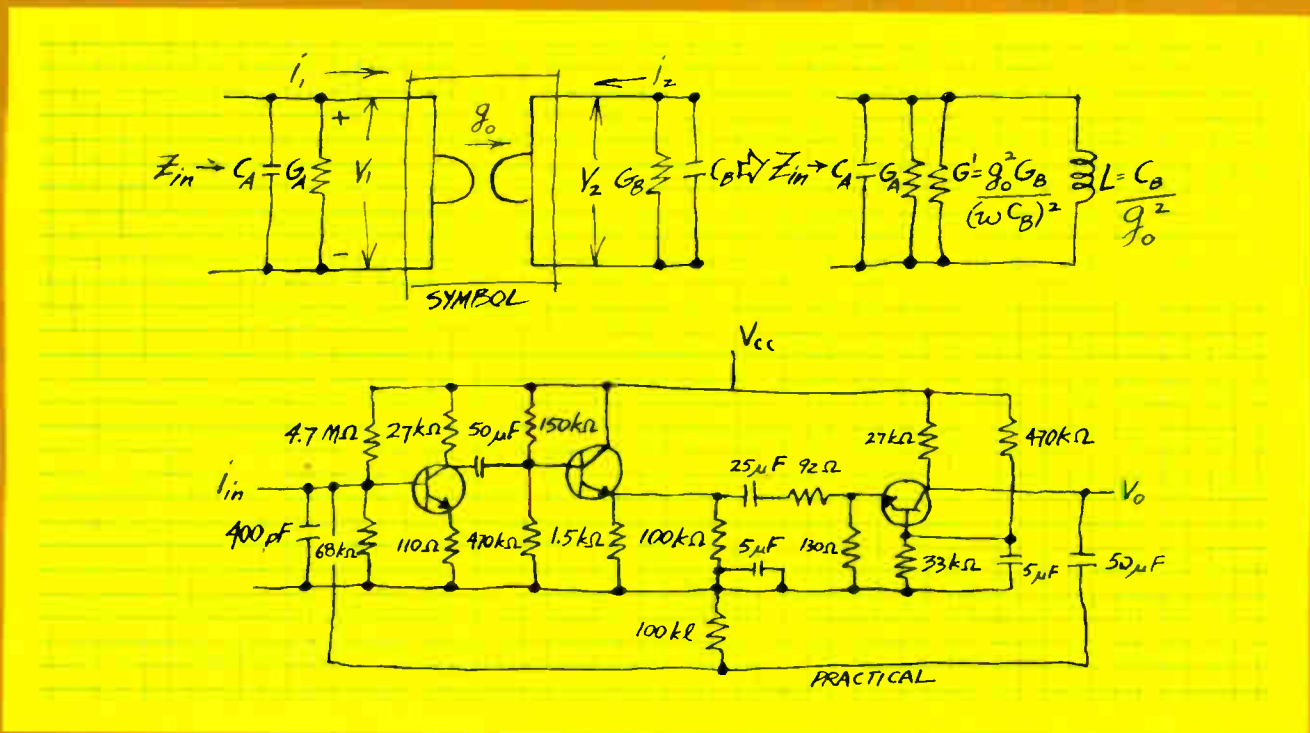 i₁ →
← i₂
g₀ →
+
Zin → C_A G_A V₁ V₂ G_B C_B ⇨ Zin → C_A G_A G' = g₀² G_B / (ω C_B)² L = C_B / g₀²
−
SYMBOL
Vcc
4.7 MΩ 27kΩ 50µF 150kΩ 27kΩ 470kΩ
25µF 92Ω
Iin V₀
400 pF 68kΩ 110Ω 470kΩ 1.5kΩ 100kΩ 5µF 130Ω 33kΩ 5µF 50µF
100kΩ
PRACTICAL